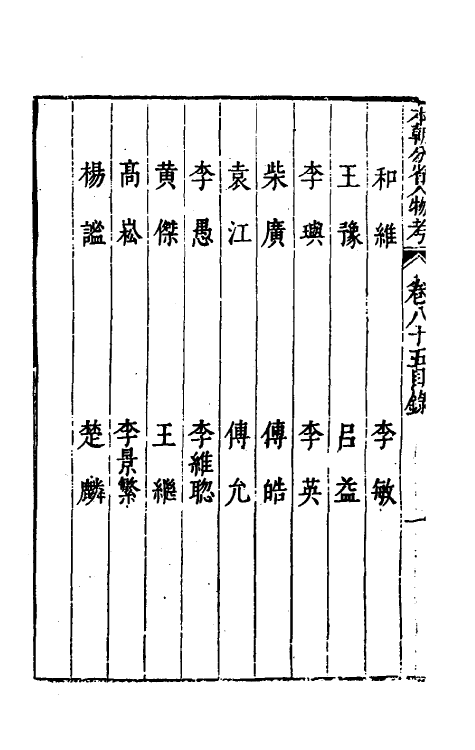 本朝分省人物考
卷八十五目錄
一
和維 李敏
王豫 呂益
李璵 李英
柴廣 傅皓
袁江 傅允
李愚 李維聰
黄傑 王繼
高崧 李景繁
楊謐 楚麟